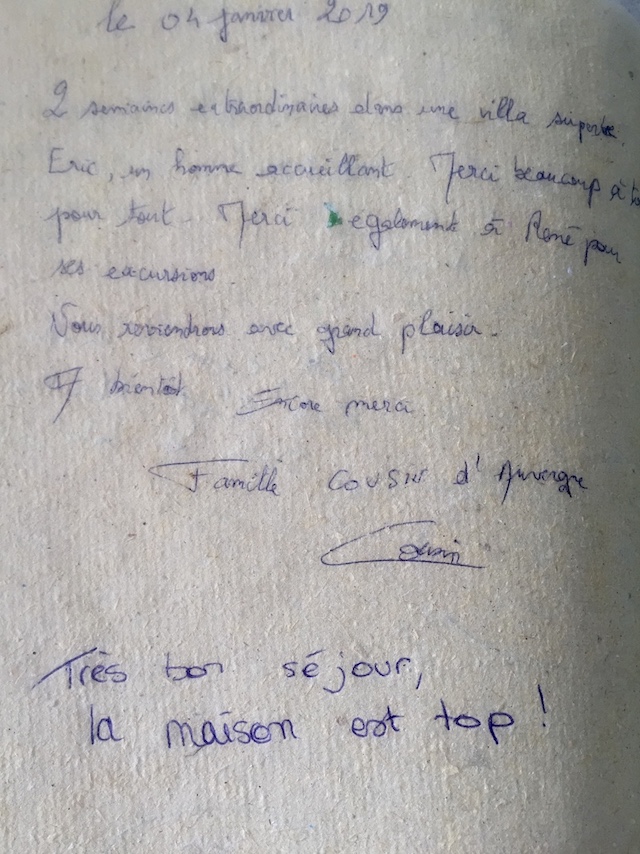 le 04 janvier 2019
2 semaines extraordinaires dans une villa superbe.
Eric, un homme accueillant. Merci beaucoup à
pour tout. Merci également à René pour
ses excursions
Nous reviendrons avec grand plaisir.
A bientôt Encore merci
Famille COUSIN d'Auvergne
Cousin
Très bon séjour,
la maison est top !